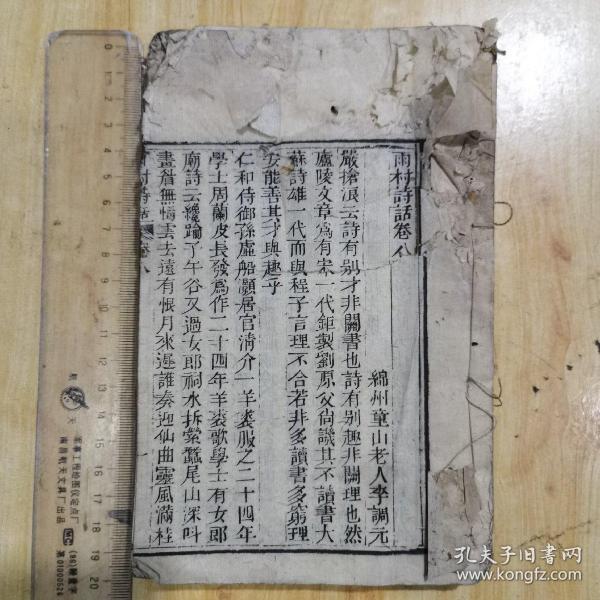 雨村詩話卷八
綿州童山老人李調元
嚴滄浪云詩有别才非關書也詩有别趣非關理也然
廬陵文章爲有宋一代鉅製劉原父尙譏其不讀書大
蘇詩雄一代而與程子言理不合若非多讀書多窮理
安能善其才與趣乎
仁和侍御孫虛船灝居官淸介一羊裘服之二十四年
學士周蘭皮長發爲作二十四年羊裘歌學士有女郞
廟詩云纔踰了午谷又過女郞祠水拆縈蠶尾山深呌
畫眉無情雲去遠有恨月來遲誰奏迎仙曲靈風滿桂
雨村詩話 卷八
航天
军事工程绘图仪定点厂
南昌航天文具厂出品
MC
(96)
第01000526
1 2 3 4 5 6 7 8 9 10 11 12 13 14 15 16 17 18 19 20
孔夫子旧书网
www.kongfz.com